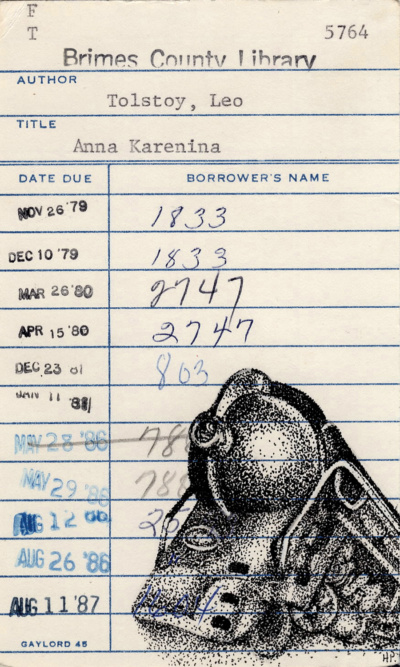 F
T 5764
Brimes County Library
AUTHOR
Tolstoy, Leo
TITLE
Anna Karenina
DATE DUE BORROWER'S NAME
NOV 26 '79 1833
DEC 10 '79 1833
MAR 26 '80 2747
APR 15 '80 2747
DEC 23 81 863
11
MAY 28 '86 788
MAY 29 '86 788
AUG 12 86
AUG 26 '86
AUG 11 '87
GAYLORD 45
HP